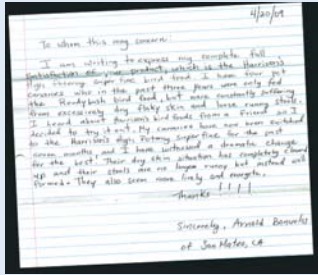 4/20/09
To whom this may concern:
I am writing to express my complete full
satisfaction of your product, which is the Harrison's
High Potency super fine bird food. I have four pet
canaries who in the past three years were only fed
the Roudybush bird food, but were constantly suffering
from excessively dry flaky skin and loose runny stools.
I heard about Harrison's bird foods from a friend so I
decided to try it out. My canaries have now been switched
to the Harrison's High Potency Superfine for the past
seven months and I have witnessed a dramatic change
for the best! Their dry skin situation has completely cleared
up and their stools are no longer runny but instead well
formed. They also seem more lively and energetic.
Thanks !!!!
Sincerely, Arnold
of San Mateo, CA